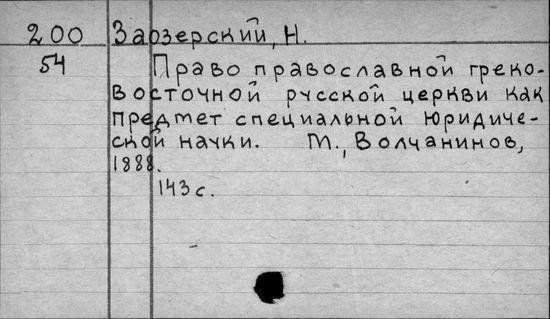 200 Заозерский, Н.
54 Право православной греко-
восточной русской церкви как
предмет специальной юридиче-
ской науки. М., Волчанинов,
1888.
143 с.